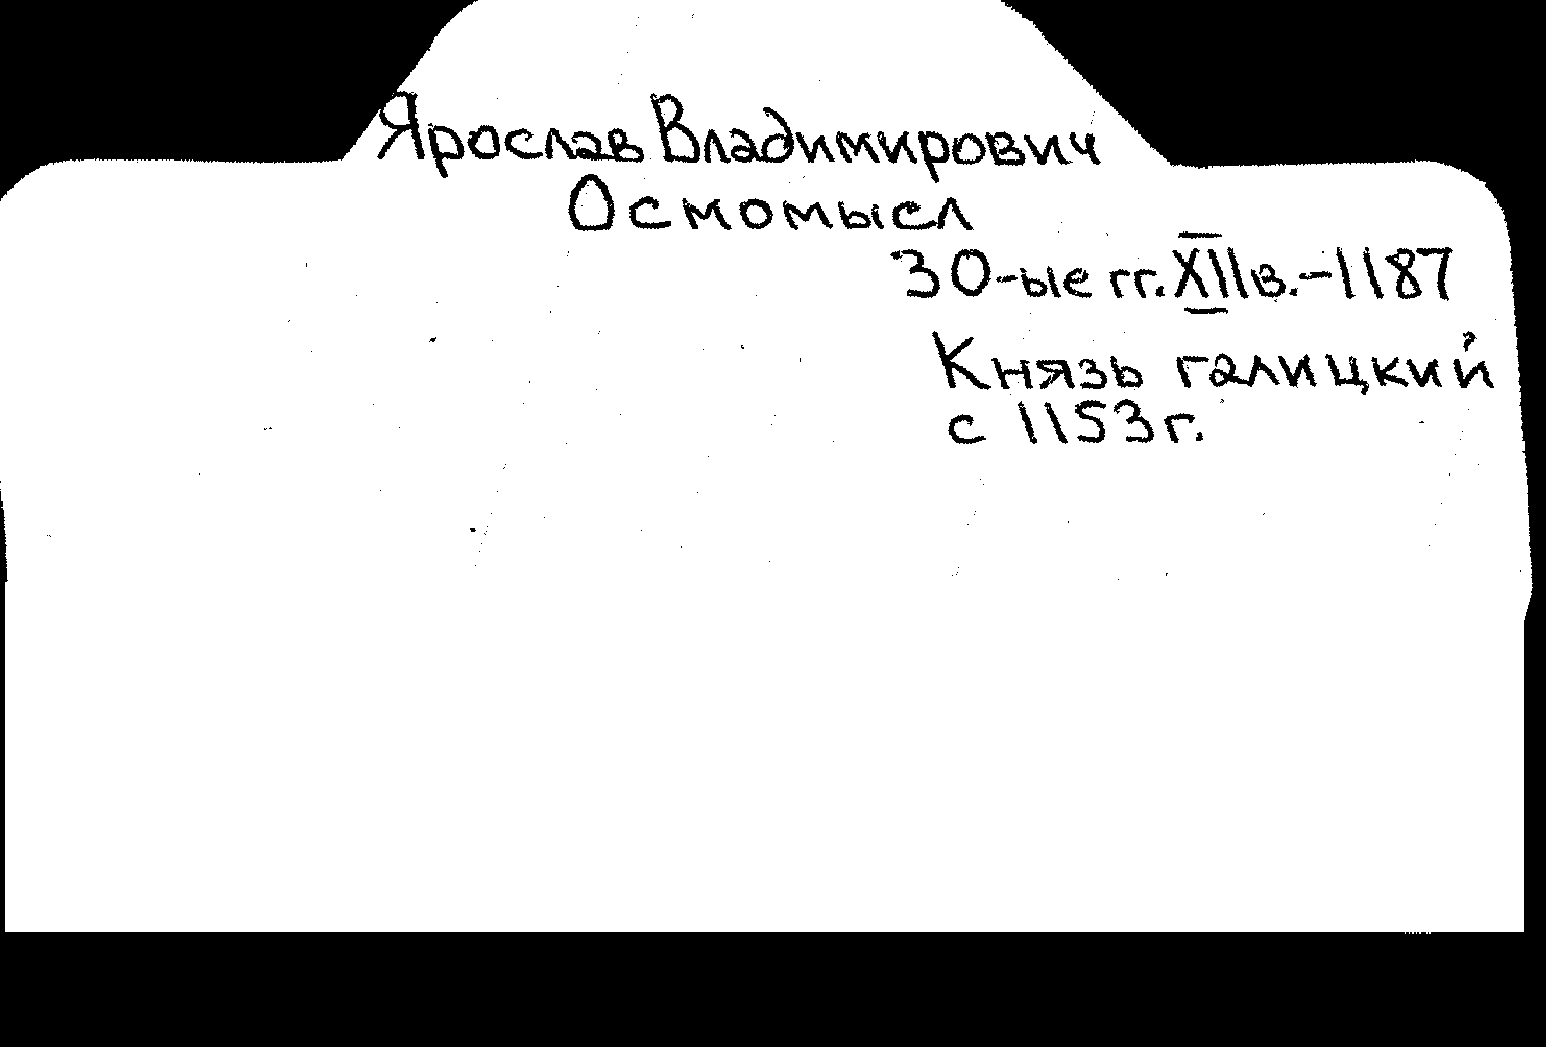 Ярослав Владимирович
Осмомысл
30-ые гг. XII в. – 1187
Князь галицкий
с 1153 г.